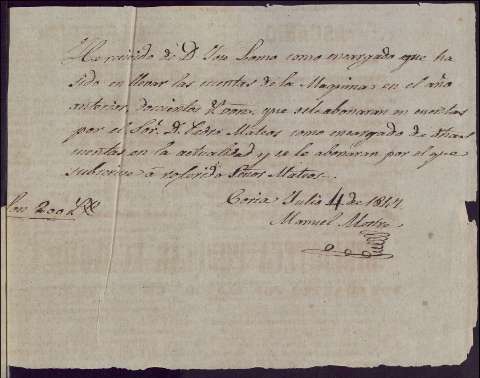 He recivido de Dn Jose Lomo como encargado que ha
sido en llevar las cuentas de la Maquina en el año
anterior, doscientos rs von. que se le abonaran en cuentas
por el Sor. D. Pedro Mateos como encargado de dhas
cuentas en la actualidad y se le abonaran por el que
subscrive á referido Señor Mateos.
Coria Julio 4 de 1844
Manuel
Son 200 rs